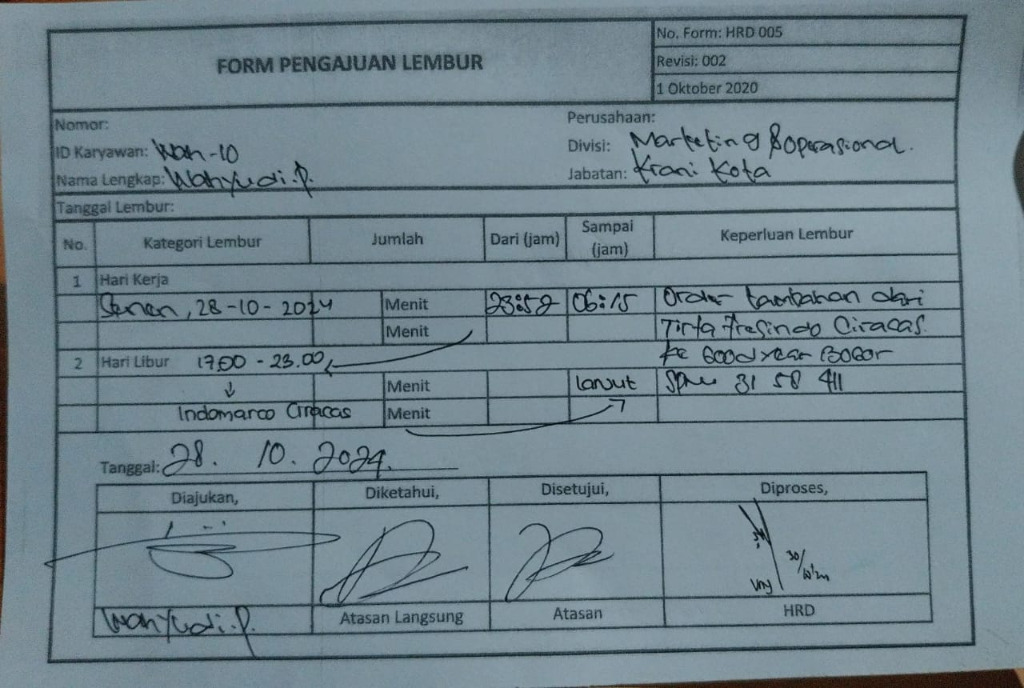 FORM PENGAJUAN LEMBUR
No. Form: HRD 005
Revisi: 002
1 Oktober 2020
Nomor:
Perusahaan:
ID Karyawan: Wah-10
Divisi: Marketing & Operasional.
Nama Lengkap: Wahyudi.P.
Jabatan: Krani Kota
Tanggal Lembur:
No. Kategori Lembur Jumlah Dari (jam) Sampai (jam) Keperluan Lembur
1 Hari Kerja
Senen, 28-10-2024 Menit 23:52 06:15 Order tambahan dari
Menit Tirta Fresindo Ciracas
2 Hari Libur 17.00 - 23.00 ke Goodyear Bogor
Menit Lanjut 31 58 411
Indomarco Ciracas Menit
Tanggal: 28. 10. 2024.
Diajukan, Diketahui, Disetujui, Diproses,
30/
Wahyudi.P. Atasan Langsung Atasan HRD